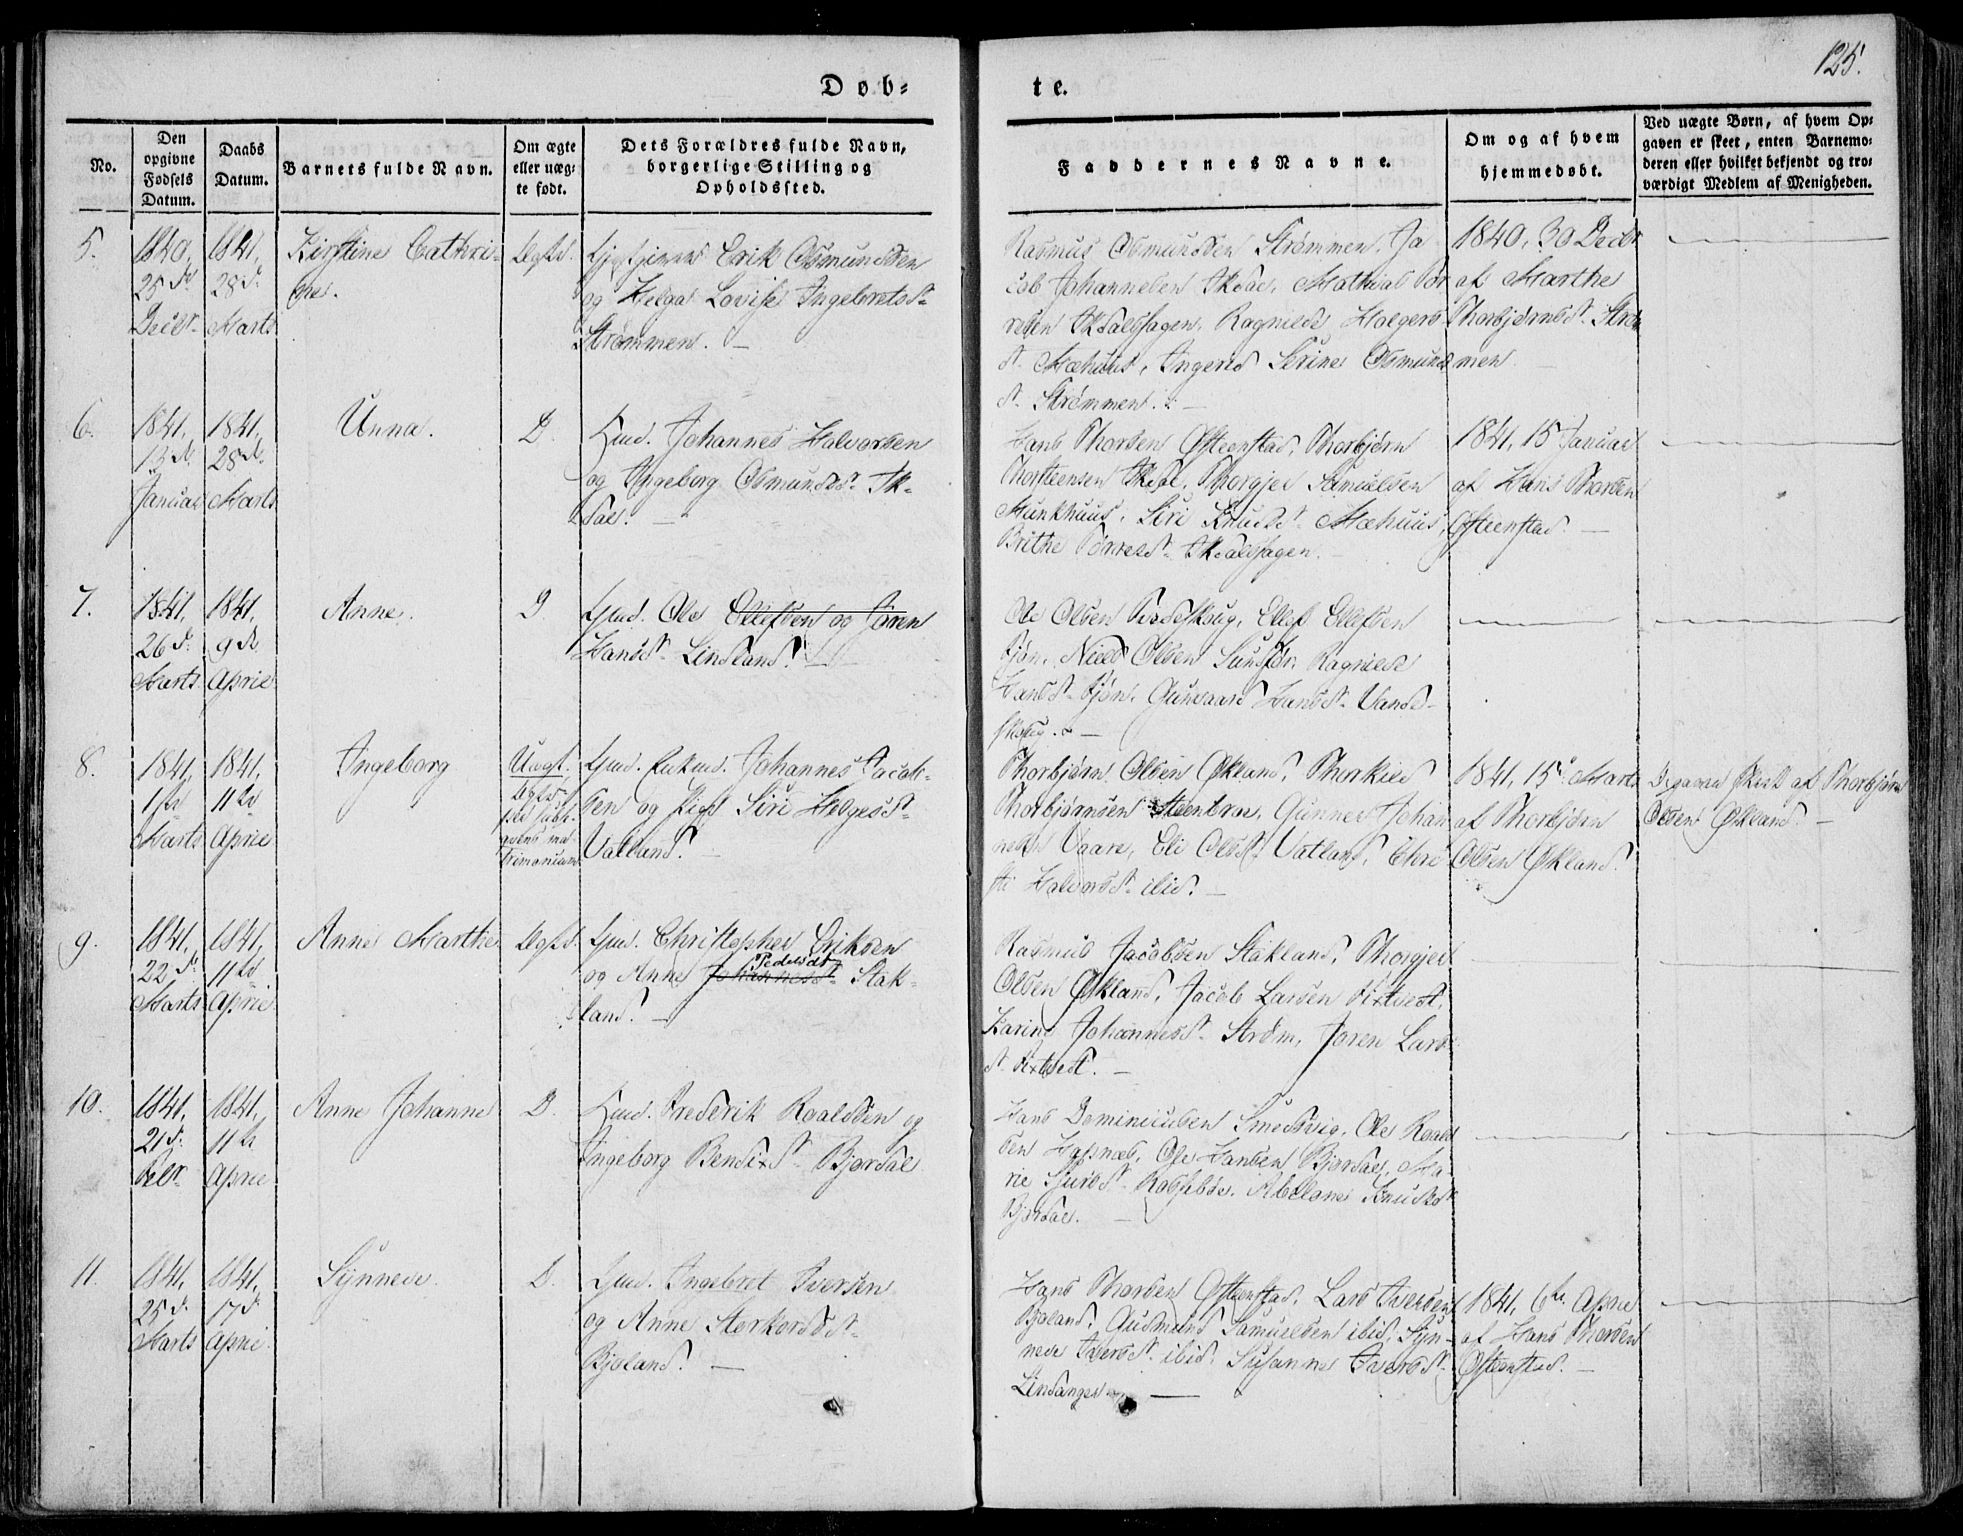 125.
Døb=
te.
No.
Den opgivne Fødsels Datum.
Daabs Datum.
Barnets fulde Navn.
Om ægte eller uæg= te født.
Dets Forældres fulde Navn, borgerlige Stilling og Opholdssted.
Faddernes Navne.
Om og af hvem hjemmedøbt.
Ved uægte Børn, af hvem Op= gaven er skeet, enten Barnemo= deren eller hvilket bekjendt og tro= værdigt Medlem af Menigheden.
5.
1840,
25 d.
Decbr.
1841,
28 d.
Marts
Kirstine Cathri-
ne.
Ægte.
Erik Osmundsen
og Helga Lovise Ingebretsd.
Strømmen.
Rasmus Osmundsen Strømmen, Ja
cob Johannesen Mathias Tør
resen Ragnilde Holgers
d. Mæhuus, Ingered Serine Osmunds
d. Strømmen.
1840, 30 Decbr.
af Marthe
Thorbjørnsd. Strøm
men
6.
1841,
13 d.
Januar
1841,
28 d.
Marts
Unna.
D.
Huusm. Johannes Halvorsen
og Ingeborg Osmundsd.
Hans Thorsen Østeenstad, Thorbjørn
Thorsteensen Thorgjer Samuelsen
Munkhuus, Siri Knudsd. Mæhuus,
Brithe Tørresd.
1841, 15 Januar
af Hans Thorsen
Østeenstad.
7.
1841,
26 d.
Marts
1841,
9 d.
April
Anne.
D.
Gmd. Ole Ellefsen og Joren
Hansd. Lindland.
Ole Olsen Ellef Ellefsen
Niels Olsen Ragnilde
Hansd. Gunvaard Hansd. Vande-
skoug.
8.
1841,
1ste
Marts
1841,
11te
April
Ingeborg
Uægt.
Ægte
per subse-
quens ma-
trimonium
Johannes Jacob-
sen og Pige Siri Helgesd.
Vatland.
Thorbjørn Olsen Økland, Thorkild
Thorbjørnsen Steenbroe, Gunner Johan
nesen Vaare, Eli Olsd. Vatland, Chri
sti Halvorsd. ibid.
1841, 15de Marts
af Thorbjørn
Olsen Økland.
Opgaven skeet af Thorbjørn
Olsen Økland.
9.
1841,
22 d.
Marts
1841,
11te
April
Anne Marthe
Ægte.
Gmd. Christopher Eriksen
Pedersd.
og Anne Johannesd. Stak-
land.
Rasmus Jacobsen Stakland, Thorgjer
Olsen Økland, Jacob Larsen
Karine Johannesd. Strøm, Joren Lars
d.
10.
1841,
21 d.
Febr.
1841,
11te
April
Anne Johanne
D.
Huusm. Frederik Roaldsen og
Ingeborg Bendixd. Bjordal
Hans Dominicusen Smedsvig, Ole Roald
sen Hapnes, Ole Hansen Bjordal, Ma
rie Sjursd. Abelone Knudsd.
Bjordal.
11.
1841,
25 d.
Marts
1841,
17 d.
April
Synneve.
D.
Gmd. Ingebret Iversen
og Anne Storkorsd.
Bjoland.
Hans Thorsen Østeenstad, Lars Iversen
Bjoland, Gudmund Samuelsen ibid, Syn-
neve Iversd. ibid, Susanne Iversd.
Lindanger
1841, 6te April
af Hans Thorsen
Østeenstad.